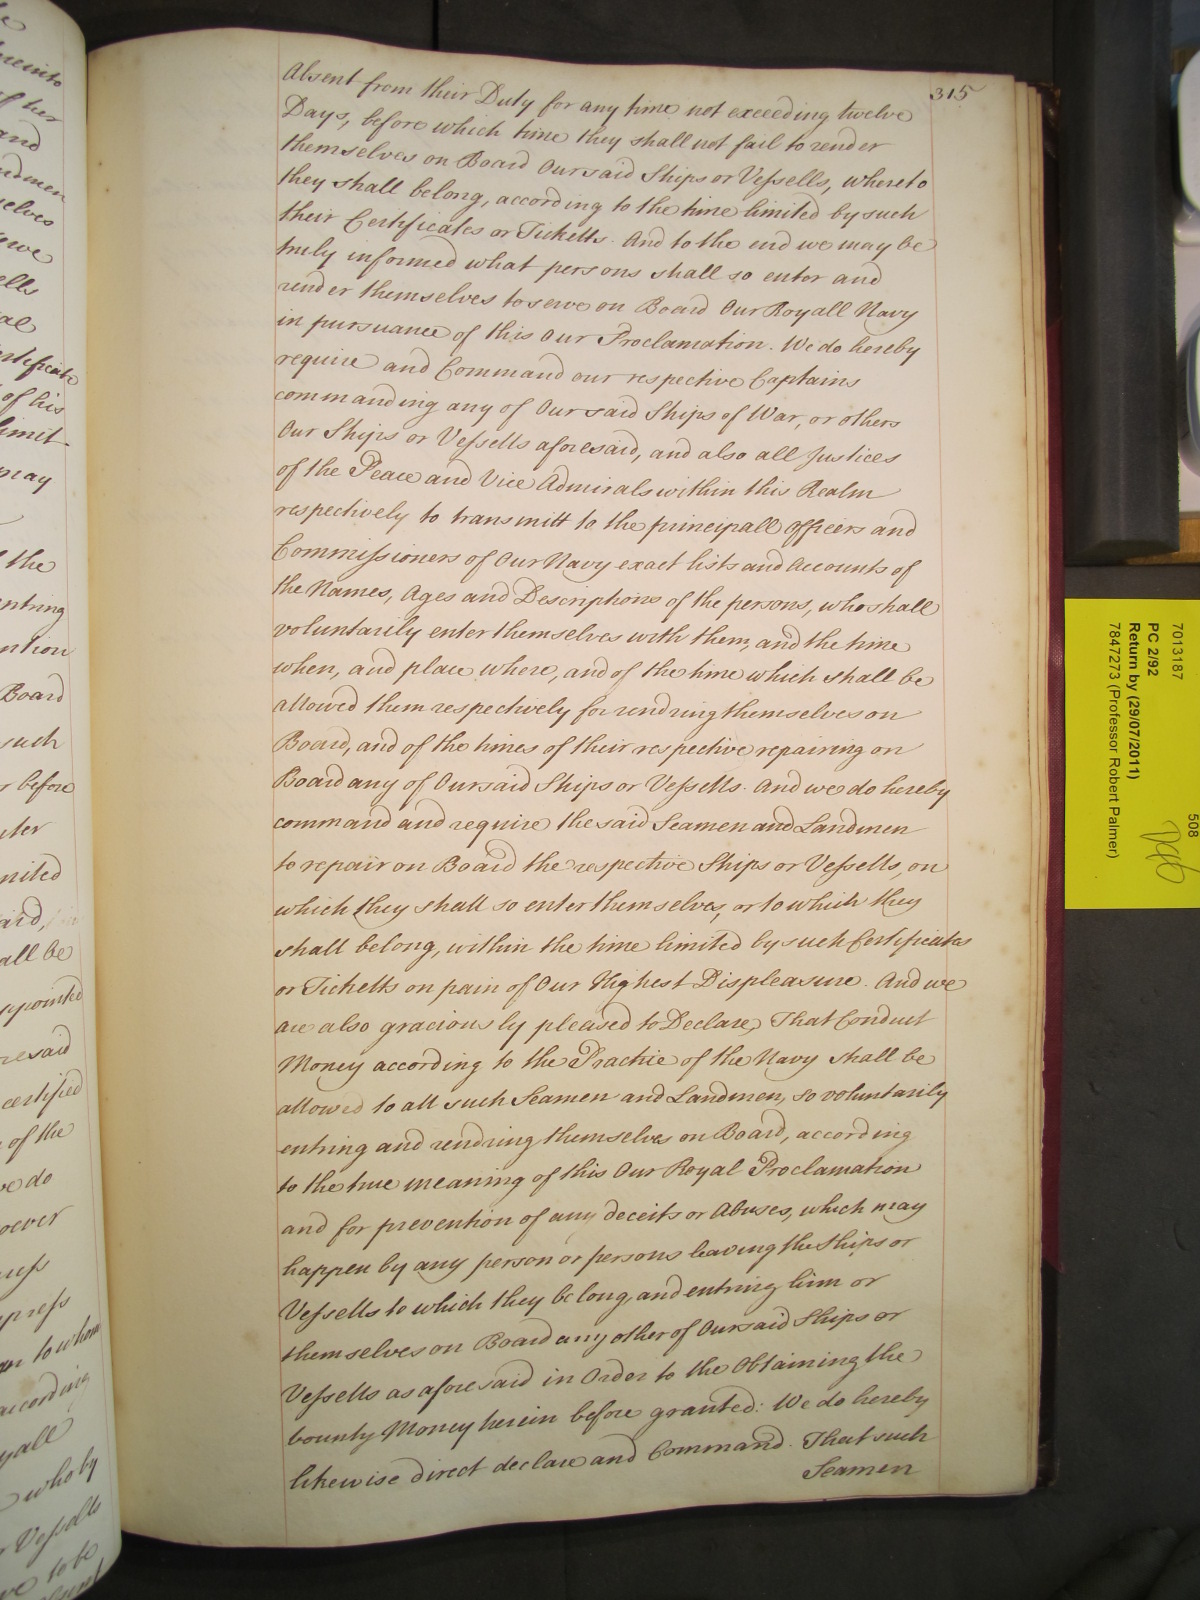 315
Absent from their Duty for any time not exceeding twelve
Days, before which time they shall not fail to render
themselves on Board Our said Ships or Vessells, whereto
they shall belong, according to the time limited by such
their Certificates or Ticketts. And to the end we may be
truly informed what persons shall so enter and
render themselves to serve on Board Our Royall Navy
in pursuance of this Our Proclamation. We do hereby
require and Command our respective Captains
commanding any of Our said Ships of War, or others
Our Ships or Vessells aforesaid, and also all Justices
of the Peace and Vice Admirals within this Realm
respectively to transmitt to the principall Officers and
Commissioners of Our Navy exact lists and Accounts of
the Names, Ages and Descriptions of the persons, who shall
voluntarily enter themselves with them, and the time
when, and place where, and of the time which shall be
allowed them respectively for rendring themselves on
Board, and of the times of their respective repairing on
Board any of Our said Ships or Vessells. And we do hereby
command and require the said Seamen and Landmen
to repair on Board the respective Ships or Vessells, on
which they shall so enter themselves, or to which they
shall belong, within the time limited by such Certificates
or Ticketts on pain of Our Highest Displeasure. And we
are also graciously pleased to Declare, That Conduct
Money according to the Practice of the Navy shall be
allowed to all such Seamen and Landmen, so voluntarily
entring and rendring themselves on Board, according
to the true meaning of this Our Royal Proclamation
and for prevention of any deceits or Abuses, which may
happen by any person or persons leaving the Ships or
Vessells to which they belong, and entring him or
themselves on Board any other of Our said Ships or
Vessells as aforesaid in Order to the Obtaining the
bounty Money herein before granted: We do hereby
likewise direct declare and Command. That such
Seamen
of his
may
the
entring
Board
such
before
all be
certified
of the
to whom
according
who by
Vessells
to be
7013187
PC 2/92
Return by (29/07/2011)
7847273 (Professor Robert Palmer)
508